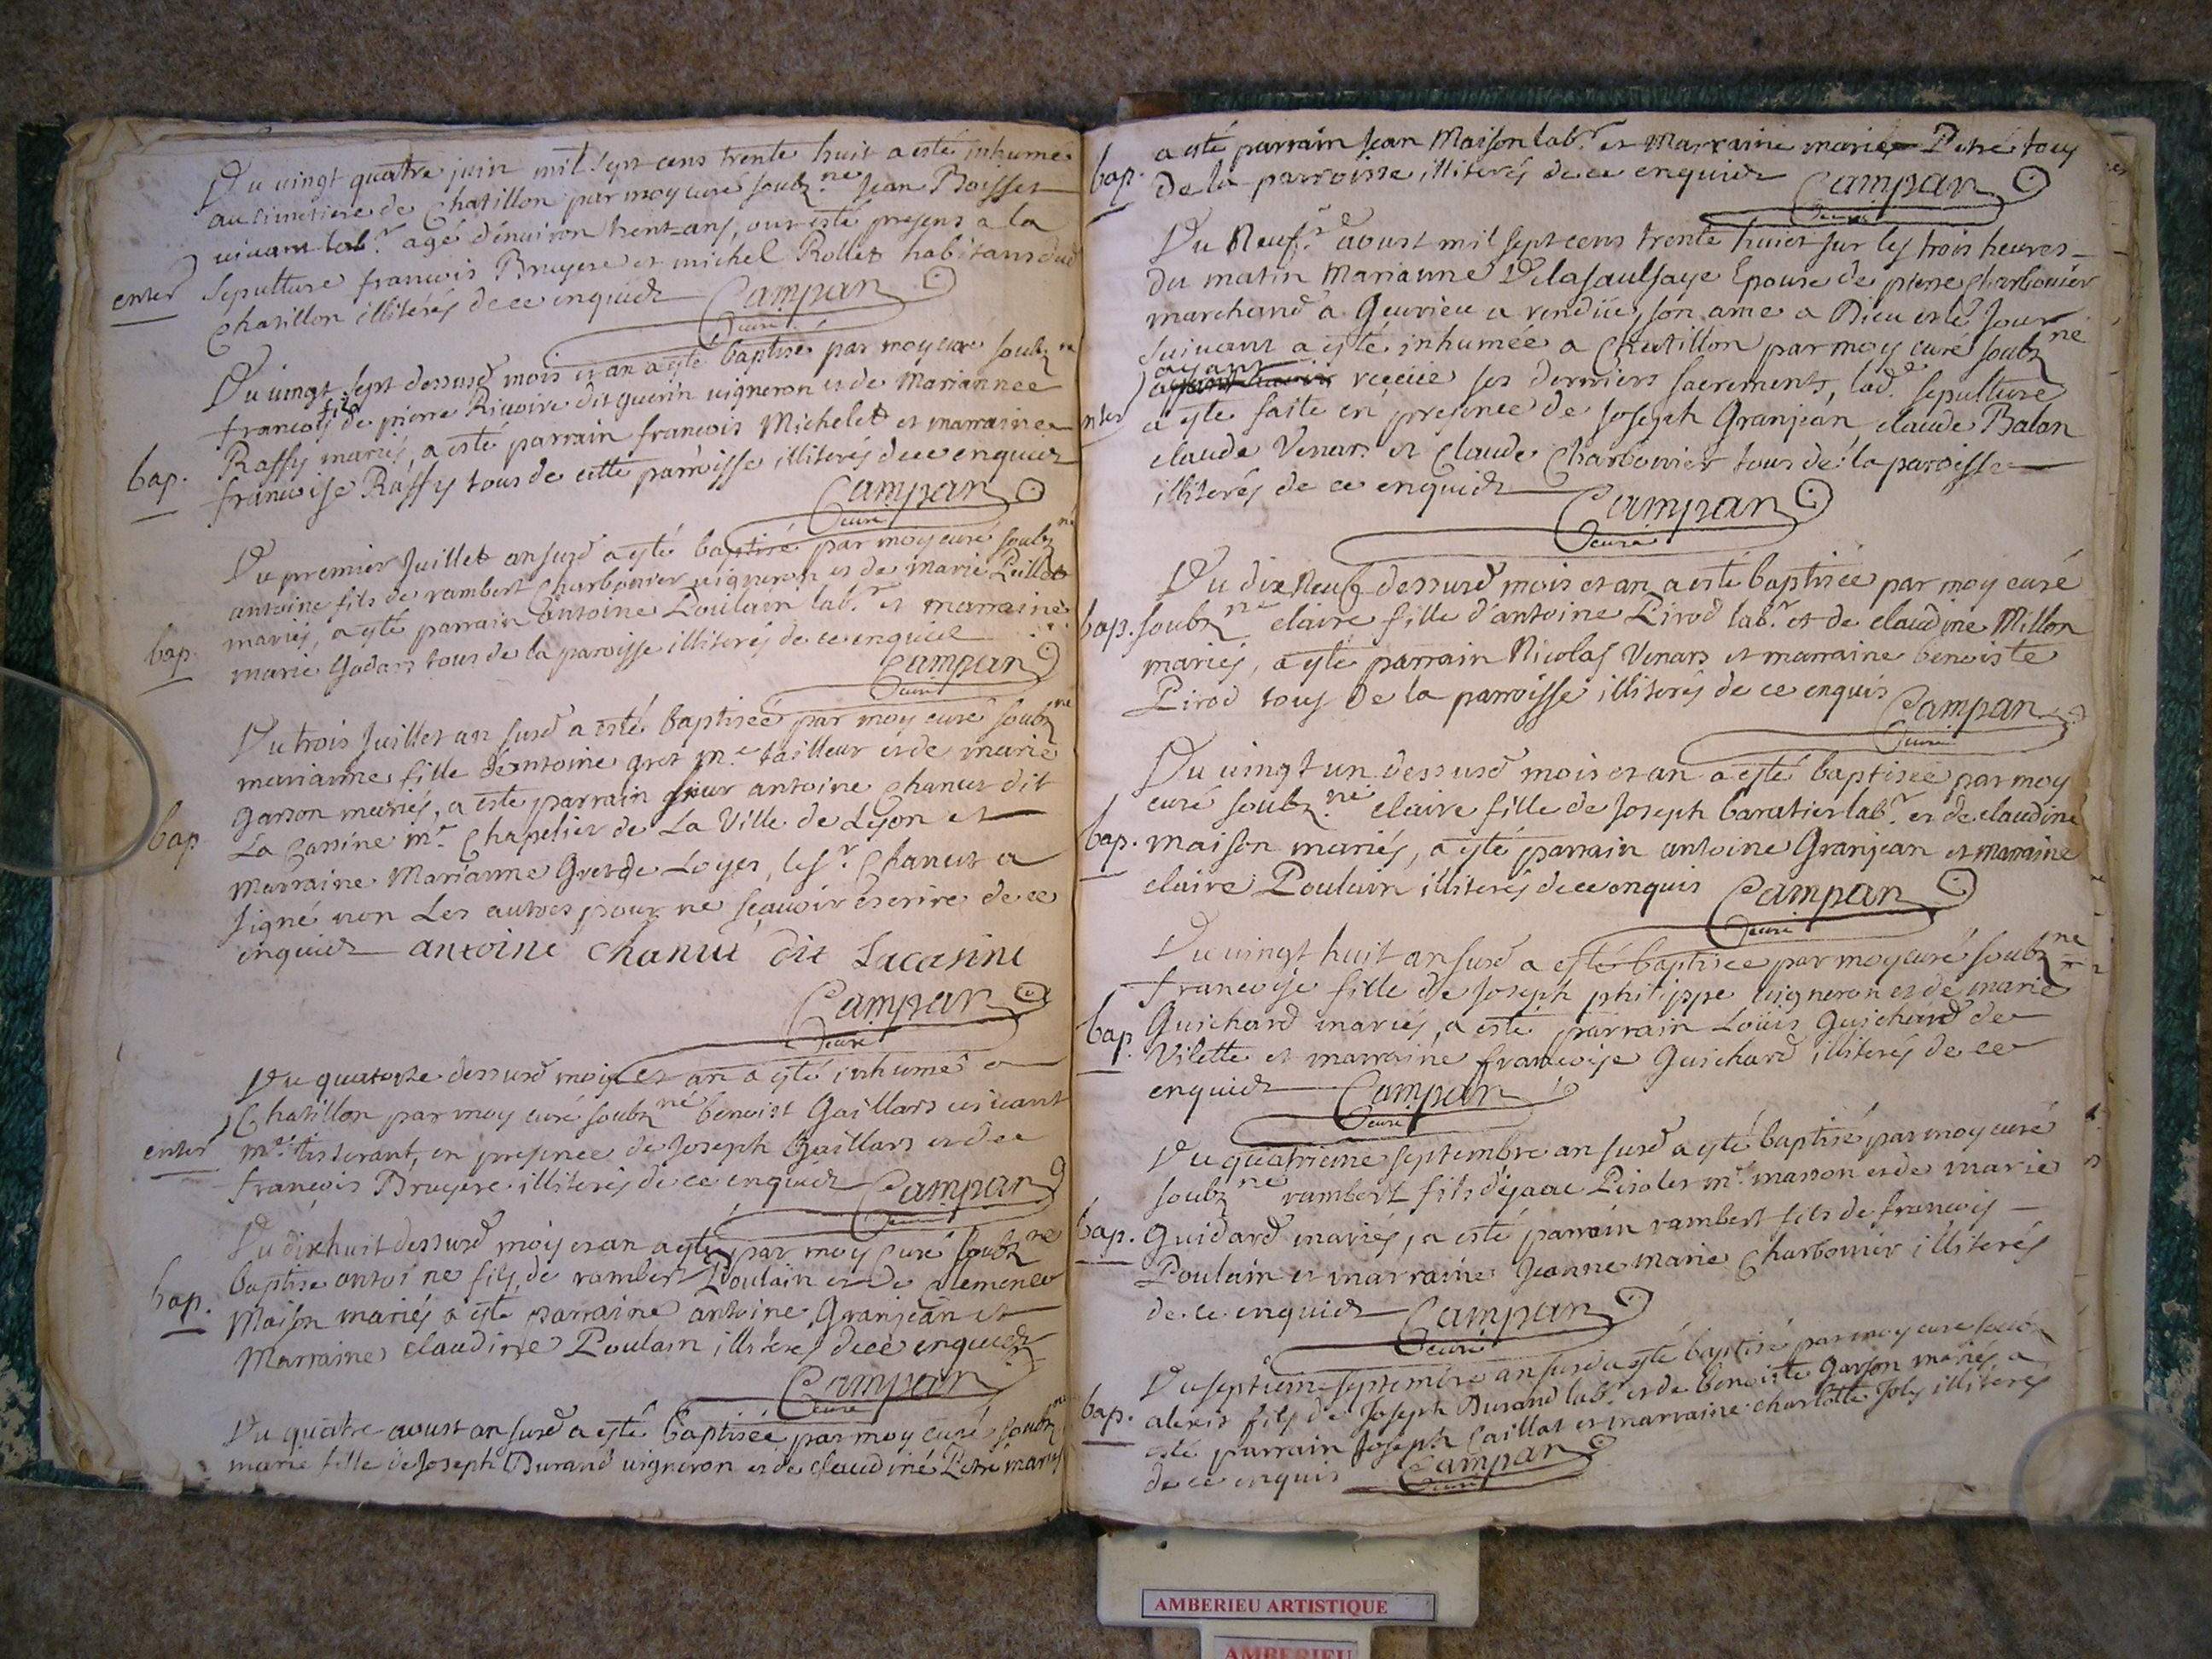 Du vingt quatre juin mil sept cens trente huit a esté inhumé
au cimetiere de Chatillon par moy curé soubz.né Jean Boisset
vivant lab.r agé d'environ trent-ans, ont esté presens a la
enter
sepulture francois Bruyere et michel Rollet habitans dud
Chatillon illiterés de ce enquid
Campan
curé
Du vingt sept dessusd mois et an a esté baptisé par moy curé soubz.né
francois fils de pierre Rivoire dit guerin vigneron et de Mariannee
bap.
Raffy mariés, a esté parrain francois Michelet et marraine
francoise Raffy tous de cette parroisse illiterés de ce enquid
Campan
curé
Du premier Juillet an susd a esté baptisé par moy curé soubz.né
antoine fils de rambert Charbonier vigneron et de marie
bap.
mariés, a esté parrain antoine Poulain lab.r et marraine
marie Godars tous de la paroisse illiterés de ce enquid
Campan
curé
Du trois Juillet an susd a esté baptisée par moy curé soubz.né
marianne fille de antoine gret m.e tailleur et de marie
garson mariés, a esté parrain sieur antoine Chanut dit
bap
La Cassine m.e Chapelier de La Ville de Lyon et
marraine Marianne Gret de Loyes, le s.r Chanut a
signé non Les autres pour ne sçavoir escrire de ce
enquid antoine chanut dit Lacasine
Campan
curé
Du quatorze dessusd mois et an a esté inhumé a
Chatillon par moy curé soubz.né benoist Gaillars vivant
enter
m.e tisserant, en presence de Joseph Gaillars et de
francois Bruyere illiterés de ce enquid Campan
curé
Du dixhuit dessusd mois et an a esté par moy curé soubz.né
bap.
baptise antoine fils de rambert Poulain et de Clemence
Maison mariés a esté parraine antoine Granjean et
Marraine claudine Poulain illiterés dece enquid
Campan
curé
Du quatre aoust an susd a esté baptisée par moy curé soubz.né
marie fille de Joseph Durand vigneron et de claudine Petré mariés
a esté parrain Jean Maison lab.r et Marraine marie Petré tous
bap.
de la parroisse illiterés de ce enquid Campan
curé
Du Neuf aoust mil sept cens trente huict sur les trois heures
du matin Marianne Delasaulsaye Epouse de pierre Charbonier
marchand a Gevrieu a rendüe son ame a Dieu et le Jour
suivant a esté inhumée a Chatillon par moy curé soubz.né
ayant
receüe ses derniers sacrements, lad.e sepulture
enter
a esté faite en presence de Joseph Granjean claude Balan
claude Venars et Claude Charbonier tous de la paroisse
illiterés de ce enquid Campan
curé
Du dix Neuf dessusd mois et an a esté baptisée par moy curé
bap.
soubz.né claire fille d'antoine Pirod lab.r et de claudine Millon
mariés, a esté parrain Nicolas Venars et marraine benoiste
Pirod tous de la parroisse illiterés de ce enquis Campan
curé
Du vingt un dessusd mois et an a esté baptisée par moy
curé soubz.né claire fille de Joseph baratier lab.r et de claudine
bap.
maison mariés, a esté parrain antoine Granjean et marraine
claire Poulain illiterés de ce enquis Campan
curé
Du vingt huit an susd a esté baptisée par moy curé soubz.né
francoise fille de Joseph philippe vigneron et de marie
bap.
Guichard mariés, a esté parrain Loüis Guichard de
Vilette et marraine francoise Guichard illiterés de ce
enquid Campan
curé
Du quatrieme septembre an susd a esté baptisé par moy curé
soubz.né rambert fils d'ysaac m.e masson et de marie
bap.
Guidard mariés, a esté parrain rambert fils de francois
Poulain et marraine Jeanne marie Charbonier illiterés
de ce enquid Campan
curé
Du septieme septembre an susd a esté baptisé par moy curé soubz
bap.
alexis fils de Joseph Durand lab.r et de benoiste Garson mariés a
esté parrain Joseph Caillat et marraine charlotte Joly illiterés
de ce enquis Campan
curé
AMBERIEU ARTISTIQUE
AMBERIEU